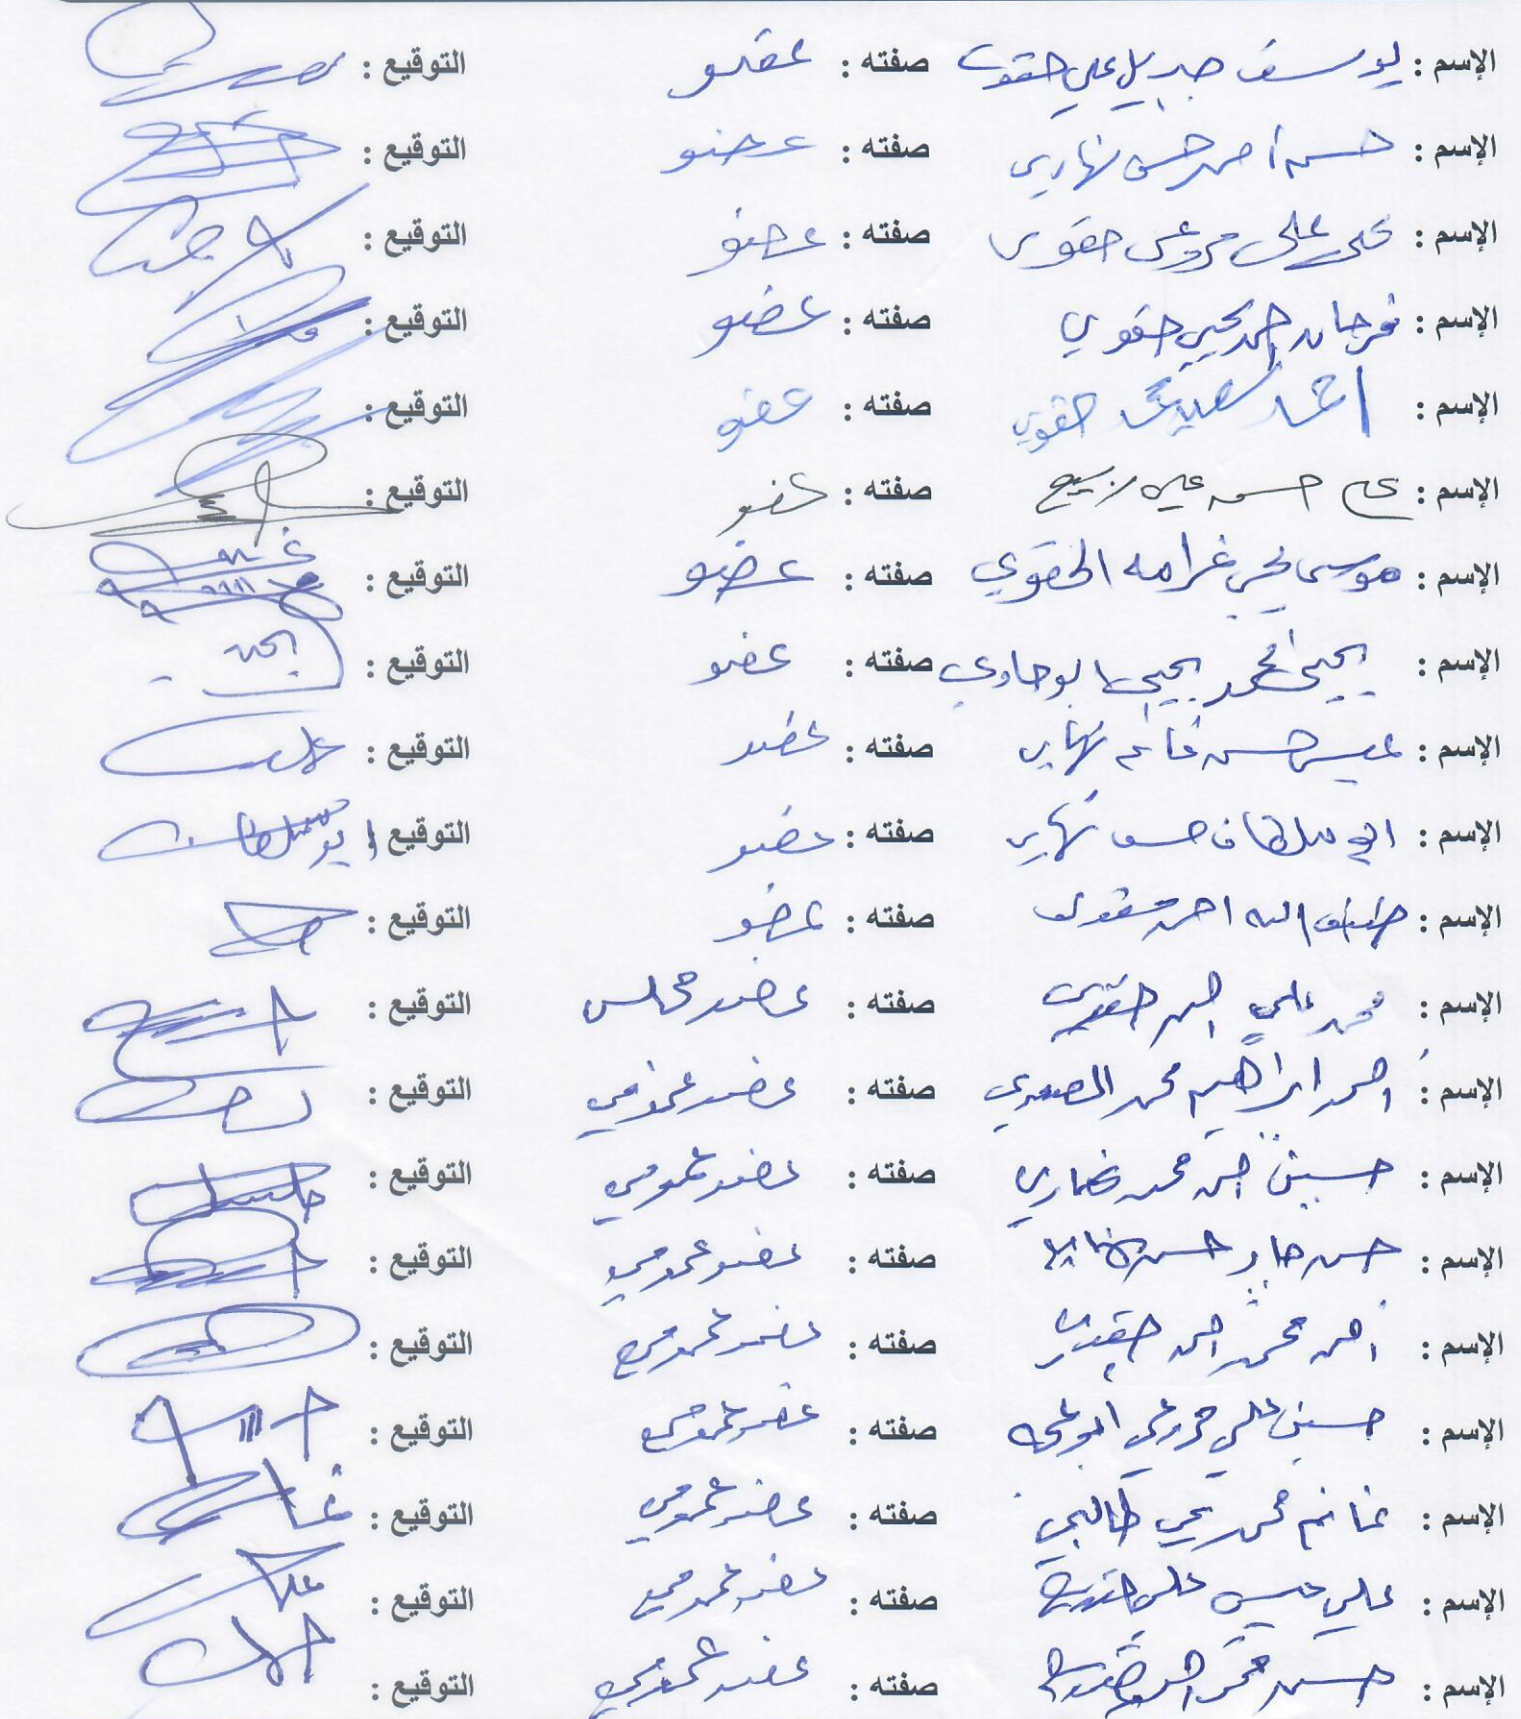 الإسم : يوسف جبريل علي حقوي صفته : عضو التوقيع :
الإسم : حسن احمد حسن نهاري صفته : عضو التوقيع :
الإسم : علي مروعي حقوي صفته : عضو التوقيع :
الإسم : فرحان احمد يحيي حقوي صفته : عضو التوقيع :
الإسم : حقوي صفته : عضو التوقيع :
الإسم : علي حسن علي ربيع صفته : عضو التوقيع :
الإسم : موسى يحيى غرامه الحقوي صفته : عضو التوقيع :
الإسم : يحيى محمد يحيى ابو حاوي صفته : عضو التوقيع :
الإسم : حسن غانم نهاري صفته : عضو التوقيع :
الإسم : ابو سلطان حسن نهاري صفته : عضو التوقيع : ابو سلطان
الإسم : ضيف الله احمد صفته : عضو التوقيع :
الإسم : محمد علي احمد حقوي صفته : عضو مجلس التوقيع :
الإسم : احمد ابراهيم محمد صفته : عضو عمومي التوقيع :
الإسم : حسين احمد محمد صفته : عضو عمومي التوقيع :
الإسم : حسن جابر حسن صفته : عضو عمومي التوقيع :
الإسم : احمد محمد احمد حقوي صفته : عضو عمومي التوقيع :
الإسم : حسين علي مروعي صفته : عضو عمومي التوقيع :
الإسم : غانم محمد يحي طالبي صفته : عضو عمومي التوقيع :
الإسم : علي عيسى علي صفته : عضو عمومي التوقيع :
الإسم : حسن محمد صفته : عضو عمومي التوقيع :